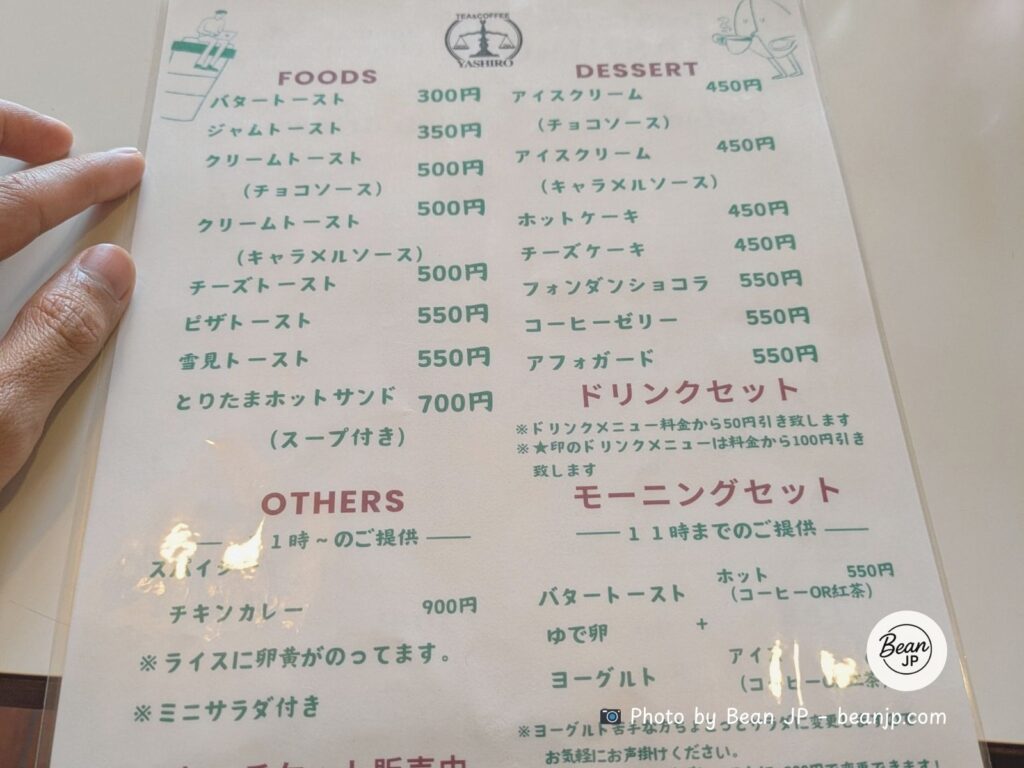 TEA&COFFEE
YASHIRO
FOODS
バタートースト 300円
ジャムトースト 350円
クリームトースト 500円
(チョコソース)
クリームトースト 500円
(キャラメルソース)
チーズトースト 500円
ピザトースト 550円
雪見トースト 550円
とりたまホットサンド 700円
(スープ付き)
OTHERS
1時~のご提供
チキンカレー 900円
※ライスに卵黄がのってます。
※ミニサラダ付き
DESSERT
アイスクリーム 450円
(チョコソース)
アイスクリーム 450円
(キャラメルソース)
ホットケーキ 450円
チーズケーキ 450円
フォンダンショコラ 550円
コーヒーゼリー 550円
アフォガード 550円
ドリンクセット
※ドリンクメニュー料金から50円引き致します
※★印のドリンクメニューは料金から100円引き
致します
モーニングセット
11時までのご提供
バタートースト
ゆで卵
ヨーグルト
+
ホット 550円
(コーヒーOR紅茶)
※ヨーグルト苦手な方
お気軽にお声掛けください。
Bean
JP
Photo by Bean JP - beanjp.com